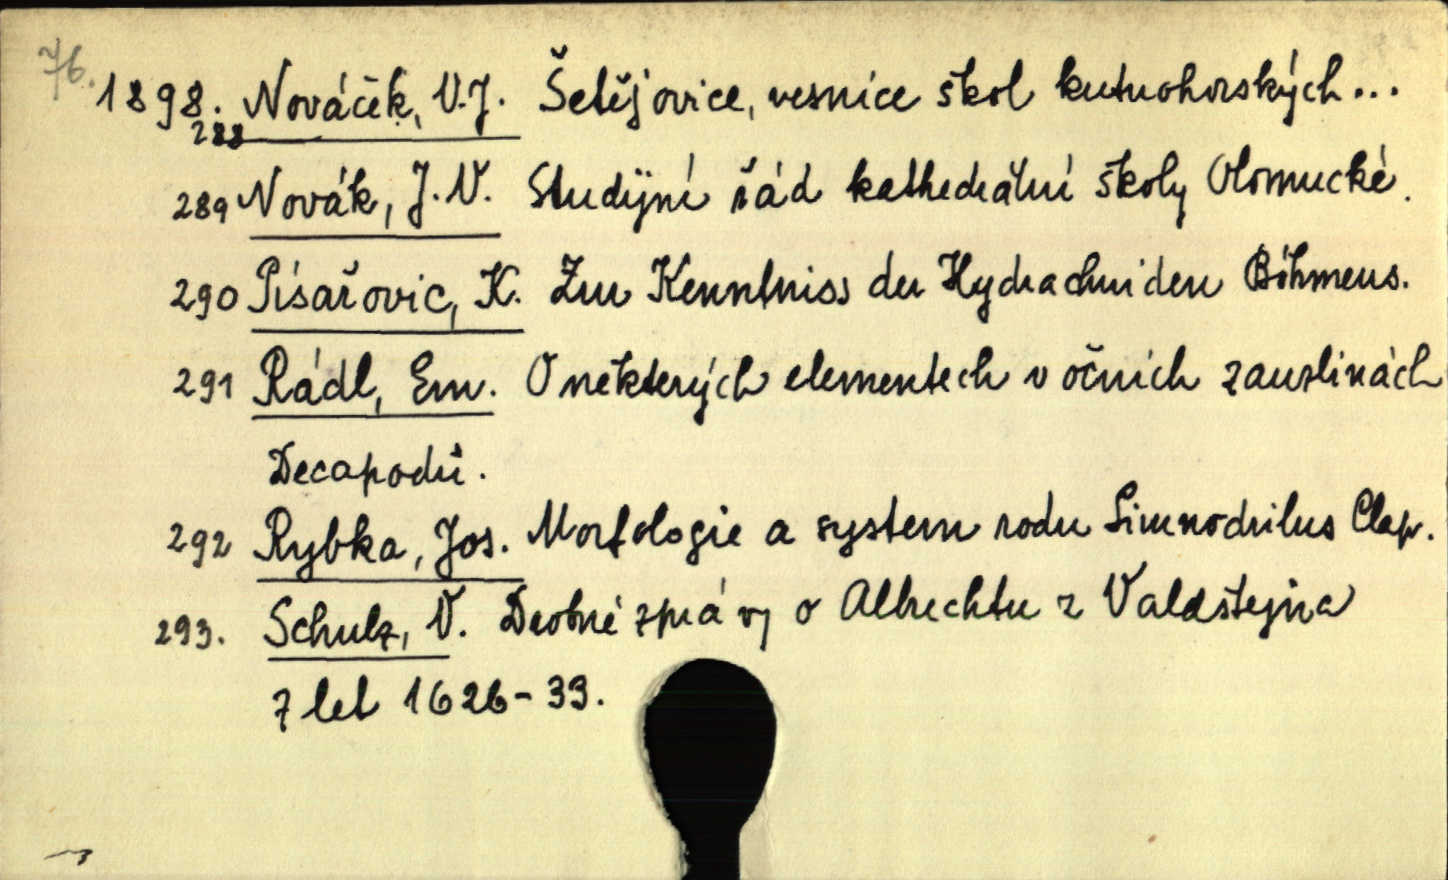 76.
1898. Nováček, V.J. Šetějovice, vesnice škol kutnohorských...
288
289 Novák, J.V. Studijní řád kathedrální školy Olomucké.
290 Písařovic, K. Zur Kenntniss der Hydrachniden Böhmens.
291 Rádl, Em. O některých elementech v očních zauzlinách
Decapodů.
292 Rybka, Jos. Morfologie a system rodu Limnodrilus Clap.
293. Schulz, V. Drobné zprávy o Albrechtu z Valdštejna
z let 1626-33.